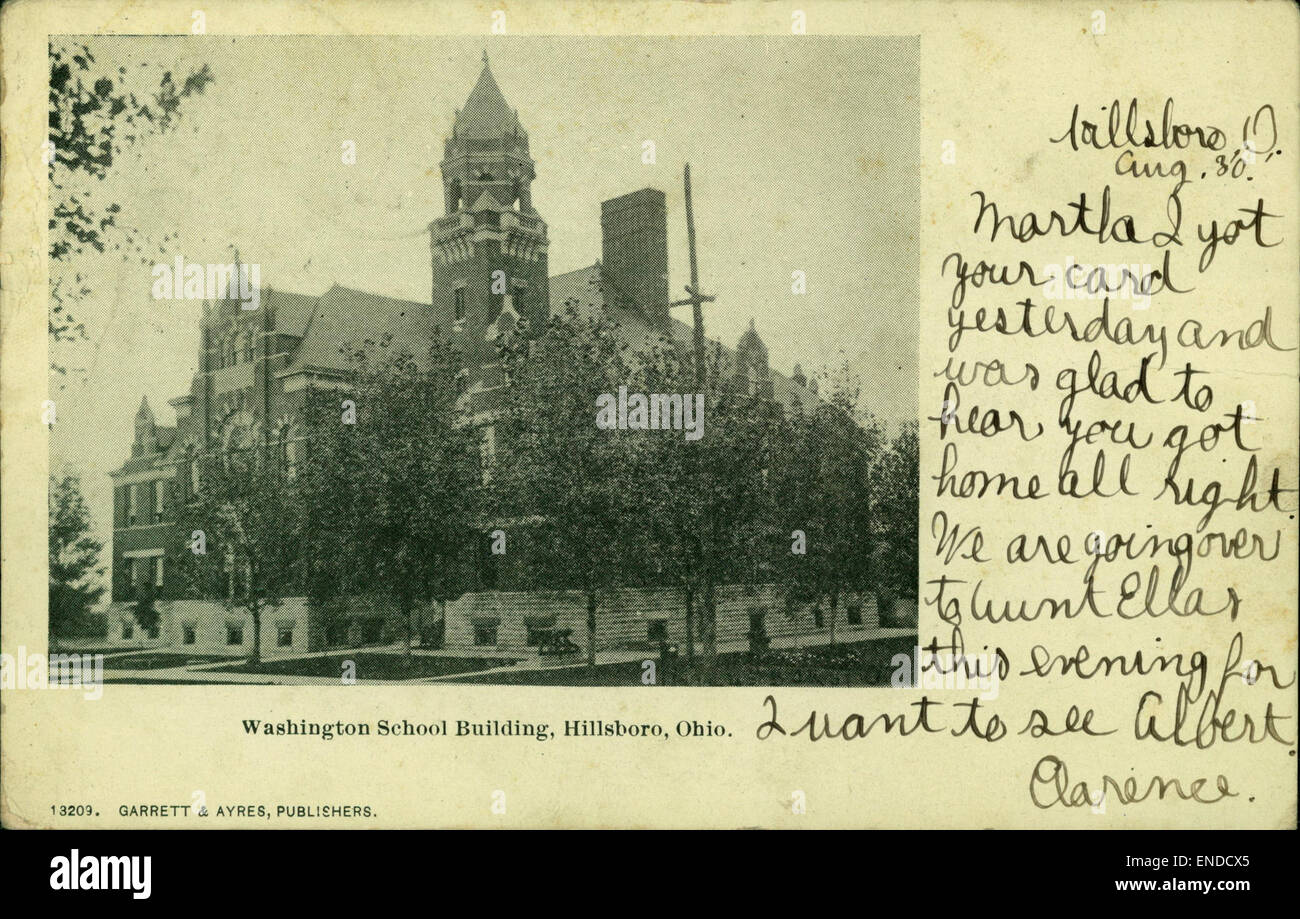 Hillsboro, O.
Aug. 30.
Martha I got
your card
yesterday and
was glad to
hear you got
home all right.
We are going over
to Aunt Ellas
this evening for
I want to see Albert.
Clarence.
Washington School Building, Hillsboro, Ohio.
13209. GARRETT & AYRES, PUBLISHERS.
alamy
Image ID: ENDCX5
www.alamy.com